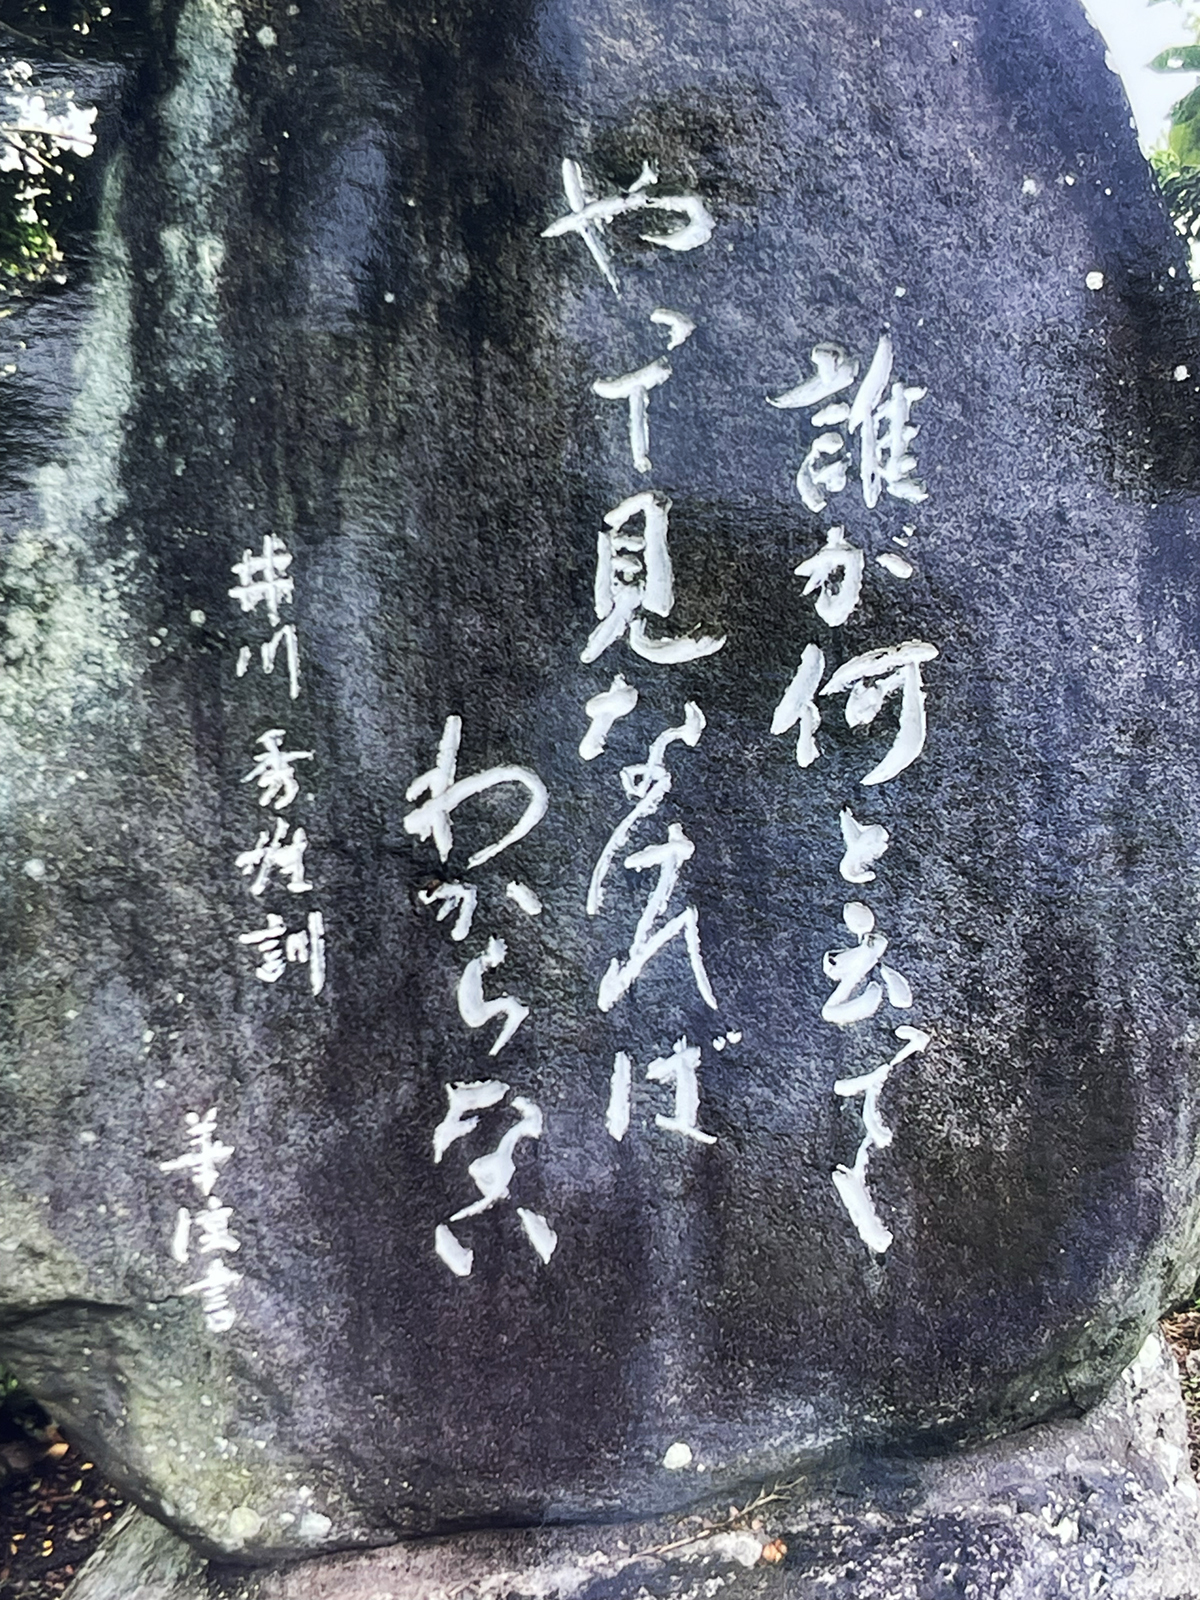 誰が何と云ても
やって見なければ
わからない
井川 秀雄 訓